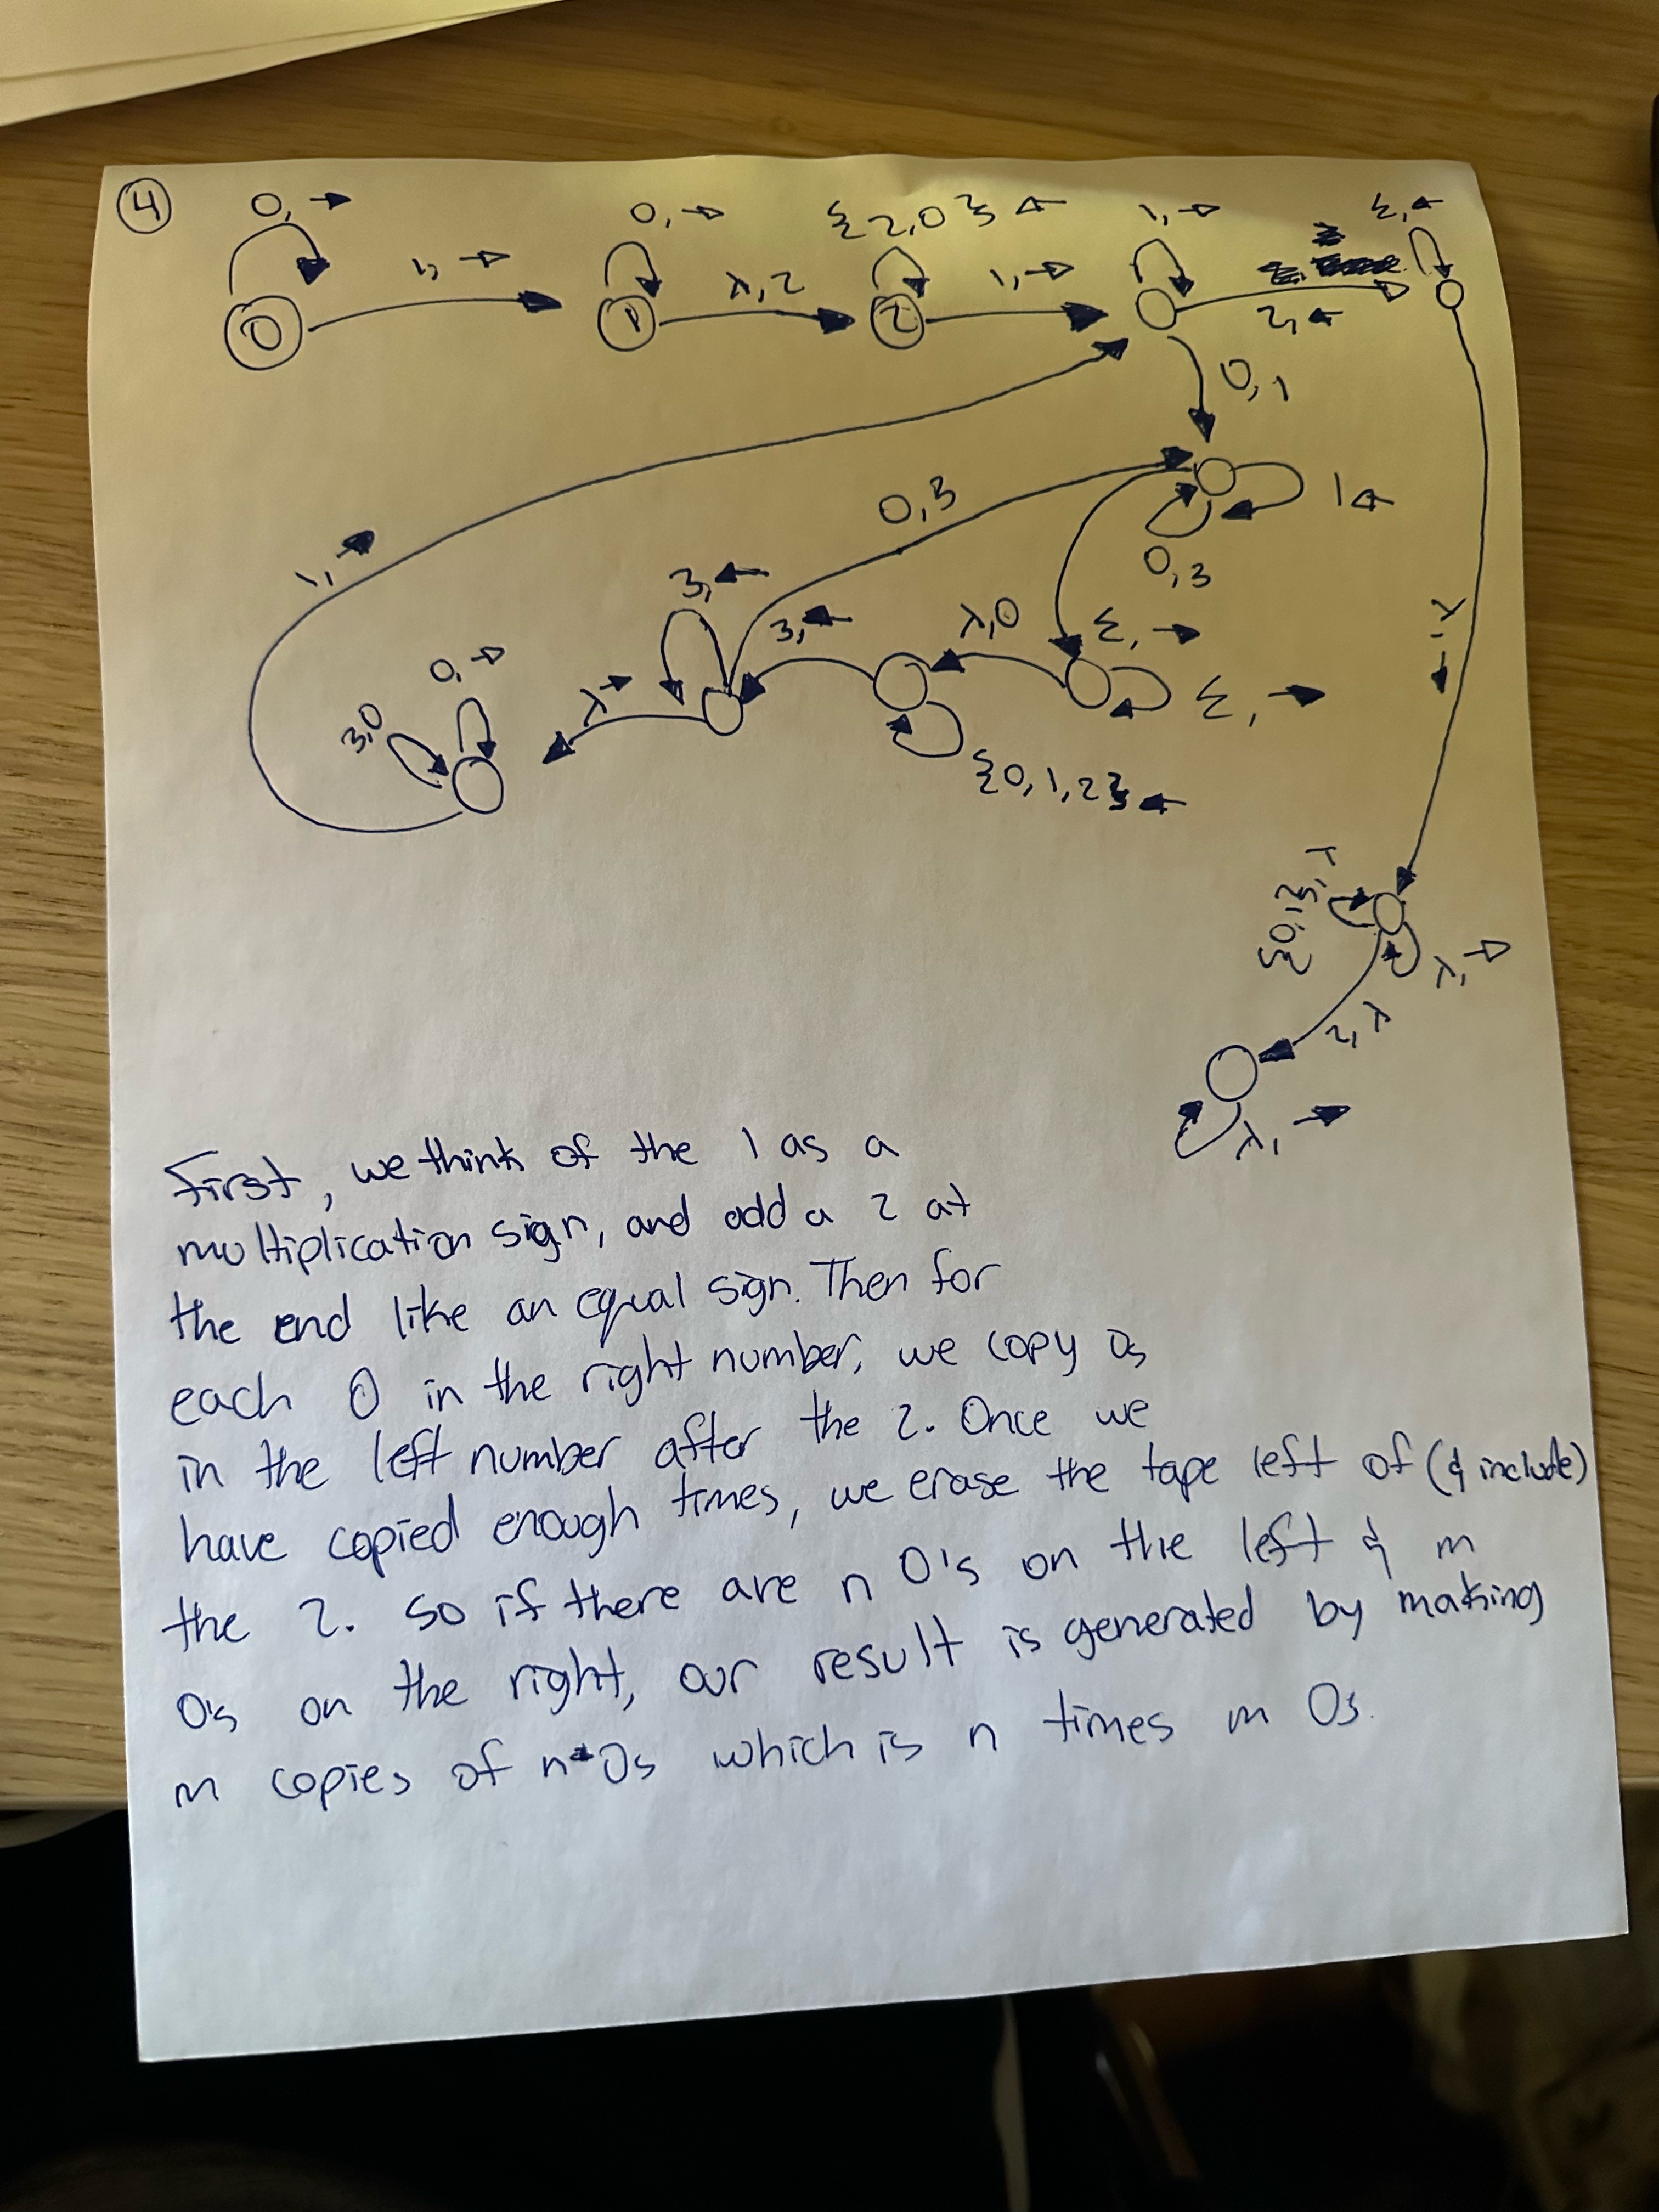 4
0, → 0, → {2,0} ← 1, → Σ, ←
1, → λ, 2 1, → 2, ←
0 1 2
0, 1
0, 3 1 ←
1, → 0, 3
3, ← 3, ← λ, 0 Σ, → λ, ←
0, → λ → Σ, →
3, 0 {0, 1, 2} ←
{0, 1}, λ
λ, →
2, λ
λ, →
First, we think of the 1 as a
multiplication sign, and add a 2 at
the end like an equal sign. Then for
each 0 in the right number, we copy 0s
in the left number after the 2. Once we
have copied enough times, we erase the tape left of (& include)
the 2. So if there are n 0's on the left & m
0's on the right, our result is generated by making
m copies of n 0s which is n times m 0s.